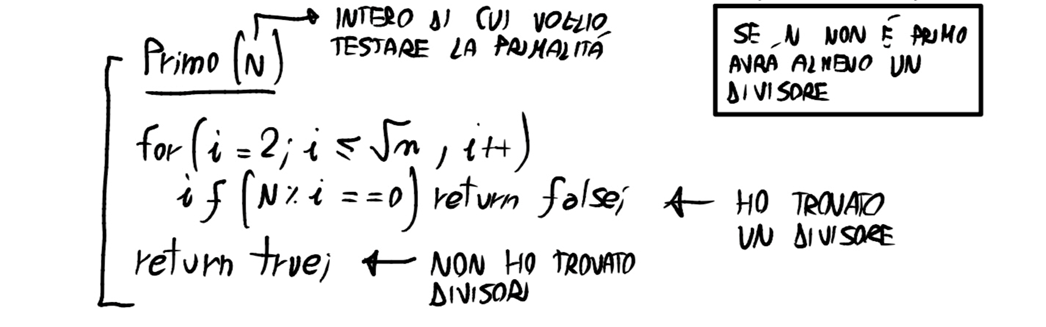 Primo (N)
INTERO DI CUI VOGLIO
TESTARE LA PRIMALITÁ
SE N NON É PRIMO
AVRÁ ALMENO UN
DIVISORE
for (i = 2; i ≤ √n , i++)
if (N % i == 0) return false;
HO TROVATO
UN DIVISORE
return true;
NON HO TROVATO
DIVISORI